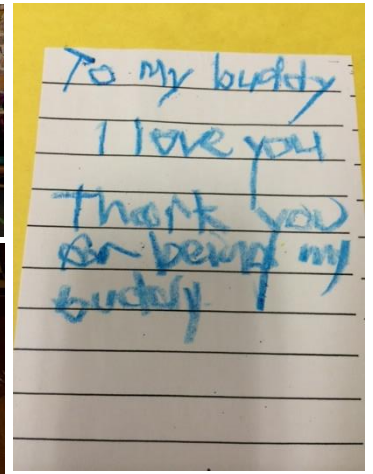 To my buddy
I love you
Thank you
for being my
buddy